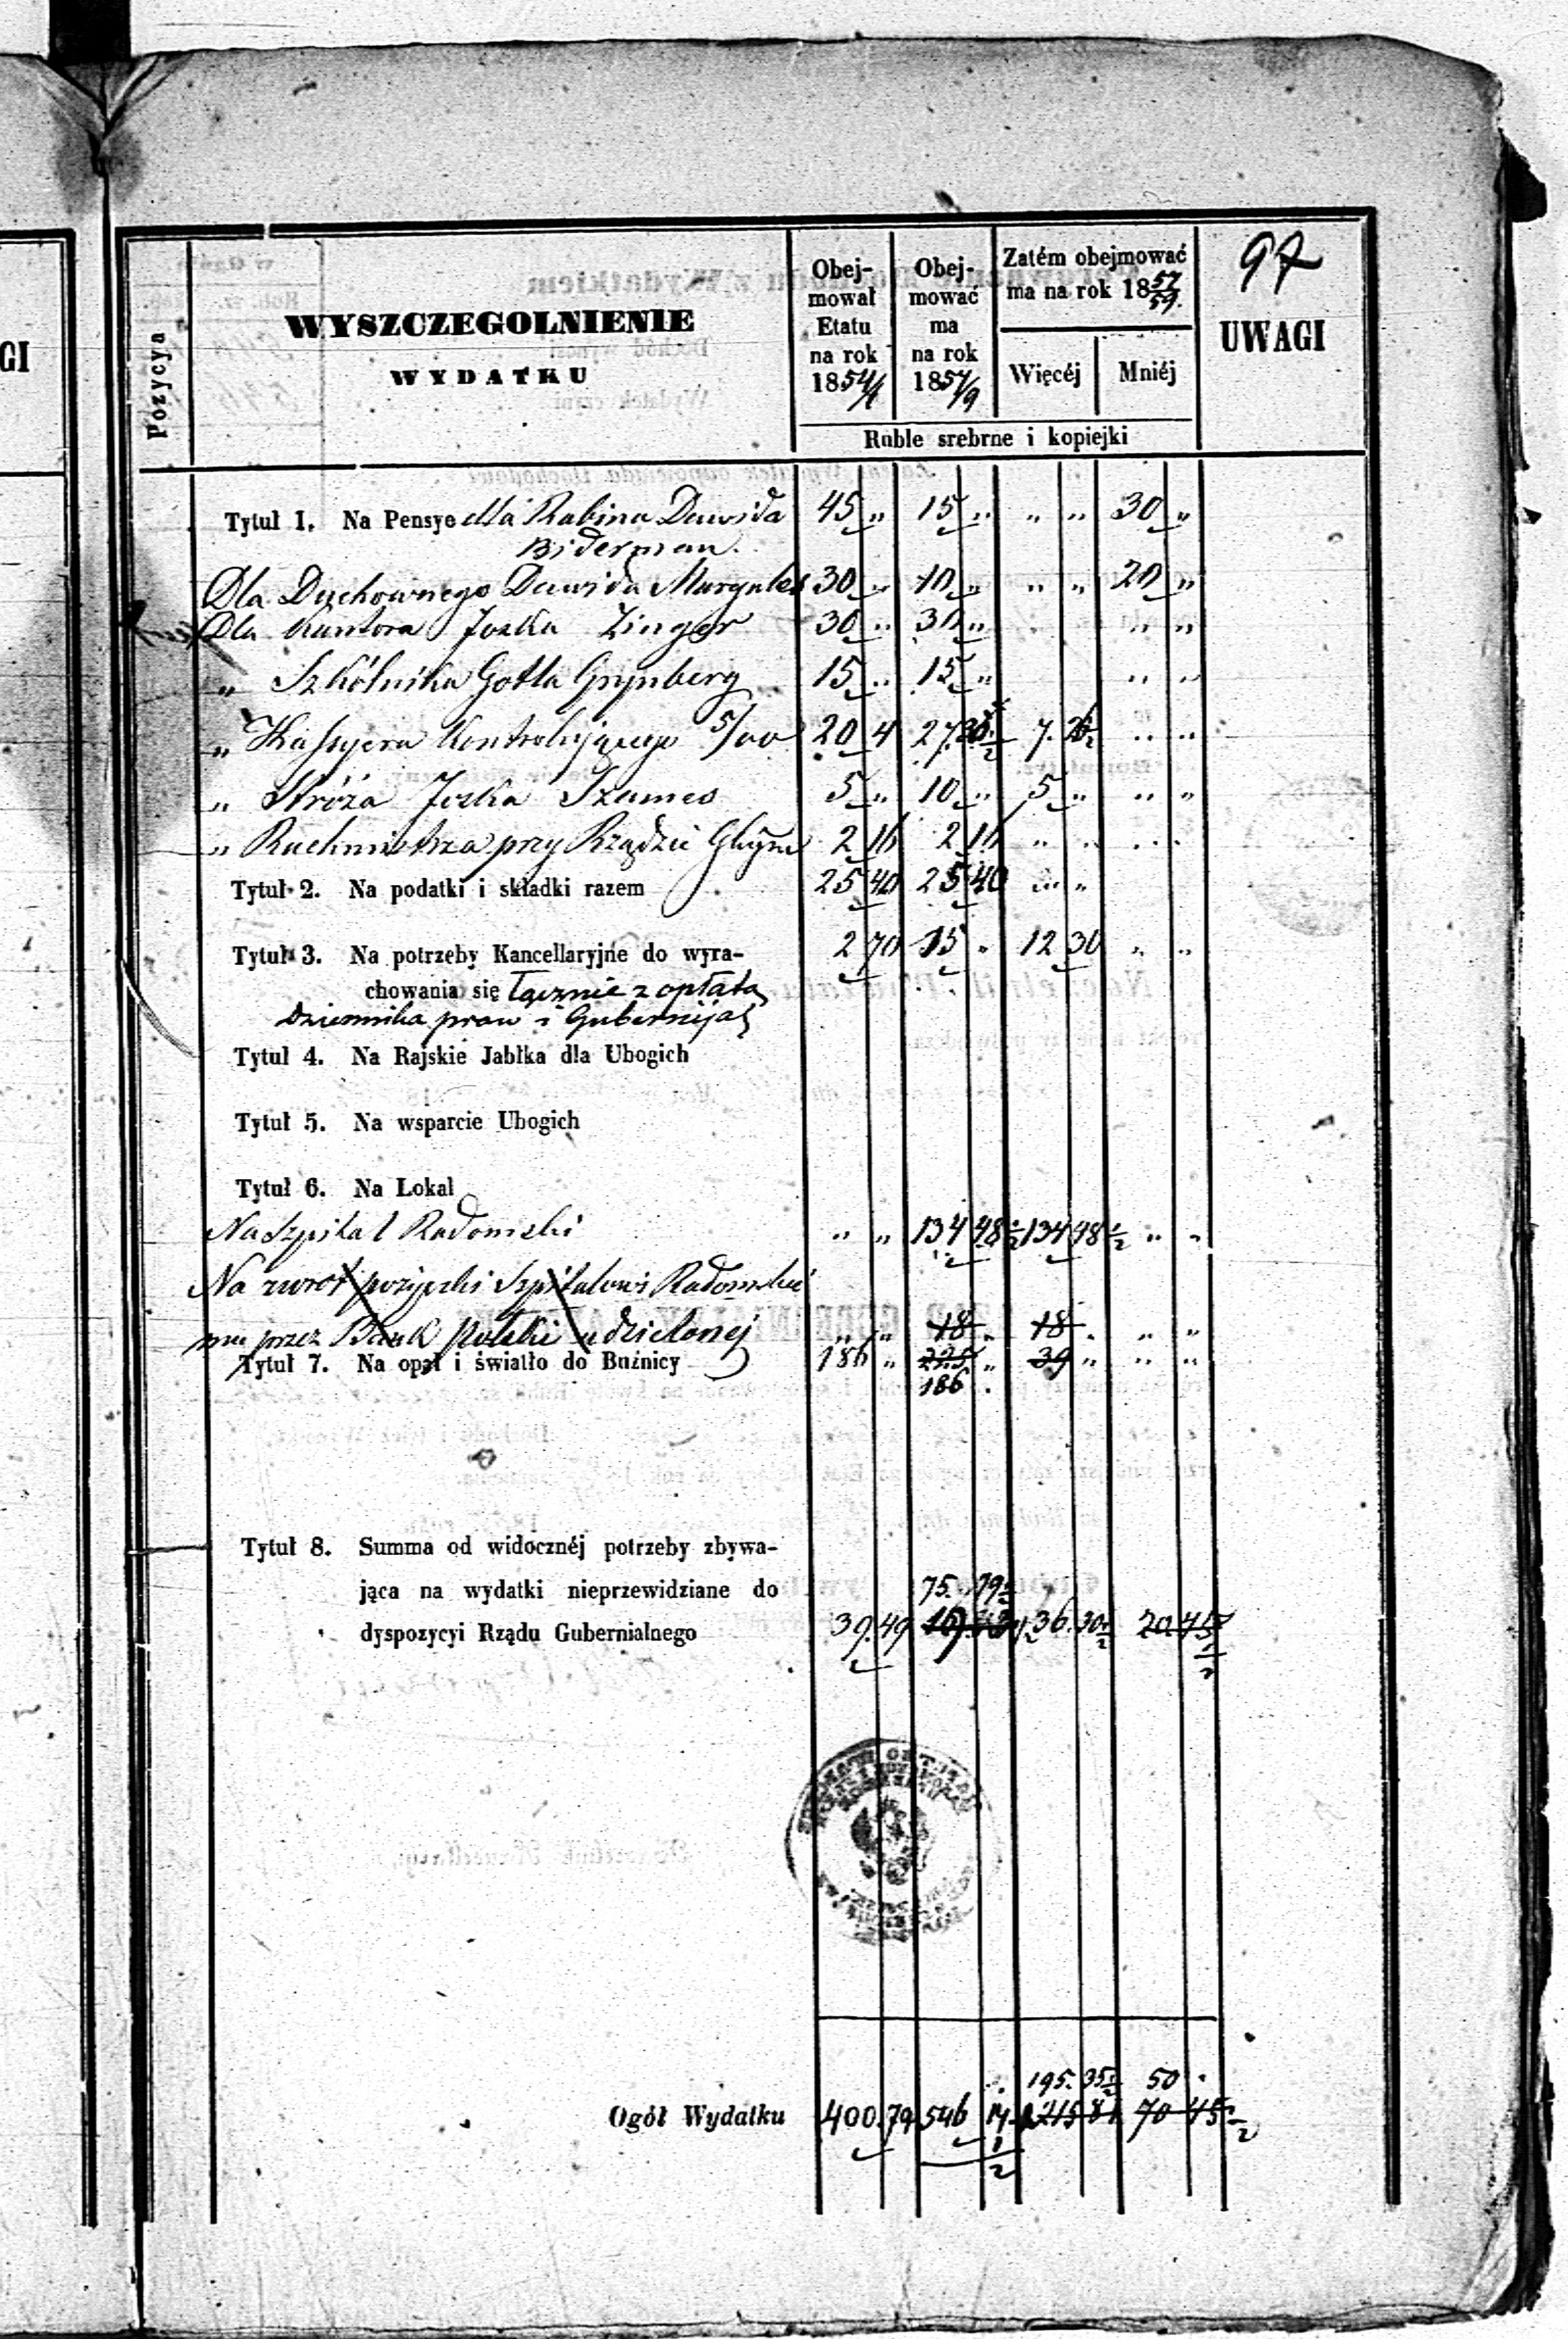 GI
97
Pozycya
WYSZCZEGOLNIENIE
WYDATKU
Obej-
mował
Etatu
na rok
1854/6
Obej-
mować
ma
na rok
1857/9
Zatém obejmować
ma na rok 18 57/59.
Więcéj Mniéj
UWAGI
Ruble srebrne i kopiejki
Tytuł 1. Na Pensye dla Rabina Dawida 45 „ 15 „ „ „ 30 „
Biderman.
Dla Duchownego Dawida Margules 30 „ 10 „ „ „ 20 „
Dla Kantora Joska Zinger 30 „ 30 „ „ „
„ Szkólnika Gotla Grynberg 15 „ 15 „ „ „
„ Kassyera Kontrolującego 5/00 20 4 27. 7. „ „
„ Stróża Joska Szames 5 „ 10 „ 5 „ „ „
„ Rachmistrza przy Rządzie Gbijm 2 16 2 16 „ „ „ „
Tytuł 2. Na podatki i składki razem 25 40 25 40 „ „
Tytuł 3. Na potrzeby Kancellaryjne do wyra- 2 70 15 „ 12 30 „ „
chowania się łącznie z opłatą
Dziennika praw i Gubernijal
Tytuł 4. Na Rajskie Jabłka dla Ubogich
Tytuł 5. Na wsparcie Ubogich
Tytuł 6. Na Lokal
Na Szpital Radomski „ „ 134 98 1/2 134 98 1/2 „ „
Na zwrot pożyczki Szpitalowi Radomskie
mu przez Bank Polski udzielonej „ „ 18 „ 18 „ „ „
Tytuł 7. Na opał i światło do Bużnicy 186 „ 225 „ 39 „ „ „
186 .
Tytuł 8. Summa od widocznéj potrzeby zbywa-
jąca na wydatki nieprzewidziane do 75. 79 1/2
dyspozycyi Rządu Gubernialnego 39. 49 36. 30 1/2 20. 45 1/2
195. 35 1/2 50 .
Ogół Wydatku 400. 79 546 14 1/2 215 81 70 45 1/2